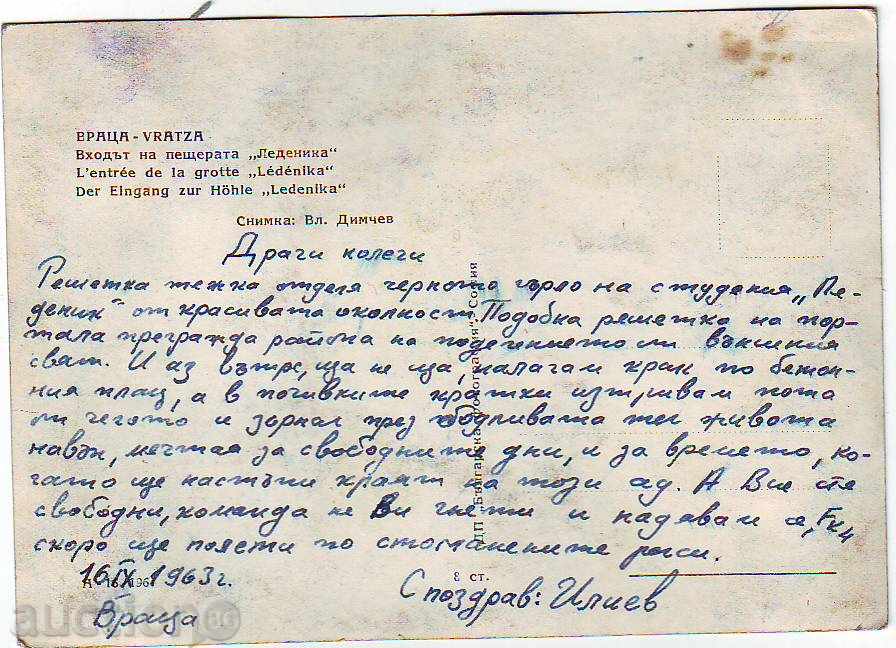 ВРАЦА - VRATZA
Входът на пещерата „Леденика“
L'entrée de la grotte „Lédénika“
Der Eingang zur Höhle „Ledenika“
Снимка: Вл. Димчев
Драги колеги
Решетка тежка отделя черното гърло на студения „Ле-
деник“ от красивата околност. Подобна решетка на пор-
тала преграждa района на поделението ни външния
свят. И аз вътре, ща не ща, налагам крак по бетон-
ния плац, а в почивките кратки изтривам пота
от челото и зърнал през бодливата тел живота
навън, мечтая за свободните дни, и за времето, ко-
гато ще настъпи краят на този ад. А Вие сте
свободни, команда не Ви гнети и надявам се,
скоро ще полети по стоманените релси.
16 IX 1963 г.
Враца
С поздрав: Илиев
8 ст.
ДП „Българска фотография“ София
auction BG